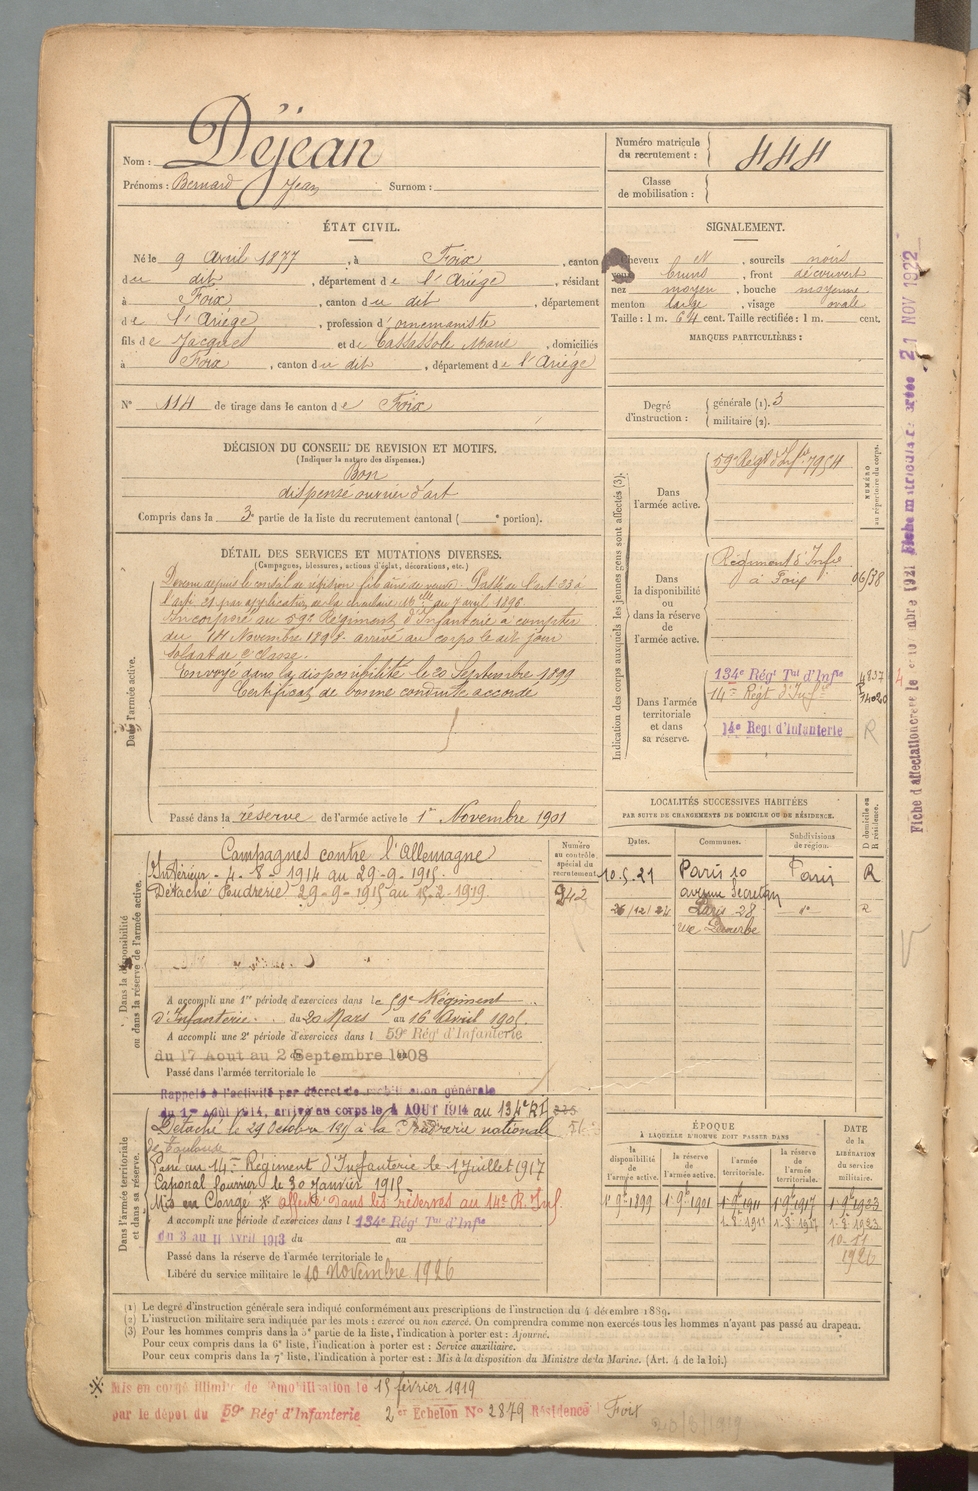 Nom : Déjean
Prénoms : Bernard Jean Surnom :
Numéro matricule du recrutement : 444
Classe de mobilisation :
ÉTAT CIVIL.
Né le 9 Avril 1877, à Foix, canton
du dit, département de l'Ariége, résidant
à Foix, canton du dit, département
de l'Ariége, profession d'ornemaniste
fils de Jacques et de Cassassole Marie, domiciliés
à Foix, canton du dit, département de l'Ariége
N° 114 de tirage dans le canton de Foix
DÉCISION DU CONSEIL DE REVISION ET MOTIFS.
(Indiquer la nature des dispenses.)
Bon
dispensé ouvrier d'art
Compris dans la 3e partie de la liste du recrutement cantonal ( e portion).
SIGNALEMENT.
Cheveux et, sourcils noirs
yeux bruns, front découvert
nez moyen, bouche moyenne
menton large, visage ovale
Taille : 1 m. 64 cent. Taille rectifiée : 1 m. cent.
MARQUES PARTICULIÈRES :
Degré d'instruction : générale (1). 3
militaire (2).
DÉTAIL DES SERVICES ET MUTATIONS DIVERSES.
(Campagnes, blessures, actions d'éclat, décorations, etc.)
Dans l'armée active.
Devenu depuis le conseil de révision fils ainé de veuve. Passé de l'art 23 à
l'art. 21 par application de la circulaire du 7 avril 1896
Incorporé au 59e Régiment d'Infanterie à compter
du 14 Novembre 1898. arrivé au corps le dit jour
soldat de 2e classe.
Envoyé dans la disponibilité le 20 Septembre 1899
Certificat de bonne conduite accordé
Passé dans la réserve de l'armée active le 1er Novembre 1901
Indication des corps auxquels les jeunes gens sont affectés (3).
NUMÉRO au répertoire du corps.
Dans l'armée active.
59e Régt d'Infie 7954
Dans la disponibilité ou dans la réserve de l'armée active.
Régiment d'Infie
à Foix
06/38
Dans l'armée territoriale et dans sa réserve.
134e Régt Tal d'Infie 4837
14me Régt d'Infie 14020
14e Régt d'Infanterie R
LOCALITÉS SUCCESSIVES HABITÉES
PAR SUITE DE CHANGEMENTS DE DOMICILE OU DE RÉSIDENCE.
Dates. Communes. Subdivisions de région. D domicile ou R résidence.
10-5-21 Paris 10 avenue Secretan Paris R
26/12/24 Paris 28 rue d° R
Dans la disponibilité ou dans la réserve de l'armée active.
Numéro au contrôle spécial du recrutement
942
Campagnes contre l'Allemagne
Intérieur - 4-8-1914 au 29-9-1915
Détaché Poudrerie 29-9-1915 au 15-2-1919
A accompli une 1re période d'exercices dans le 59e Régiment
d'Infanterie. du 20 Mars au 16 Avril 1905
A accompli une 2e période d'exercices dans l 59e Rég' d'Infanterie
du 17 Aout au 2 Septembre 1908
Passé dans l'armée territoriale le
Dans l'armée territoriale et dans sa réserve.
Rappelé à l'activité par décret de mobilisation générale
du 1er Août 1914, arrivé au corps le 4 AOUT 1914 au 134e RI
Détaché le 29 Octobre 1915 à la Poudrerie nationale
de Toulouse
Passé au 14me Régiment d'Infanterie le 1 Juillet 1917
Caporal fourrier le 30 Janvier 1915
Mis en Congé ※ affecté dans les réserves au 14e R. Inf.
A accompli une période d'exercices dans l 134e Rég' Tal d'Infie
du 3 au 11 Avril 1913 du au
Passé dans la réserve de l'armée territoriale le
Libéré du service militaire le 10 novembre 1926
ÉPOQUE
À LAQUELLE L'HOMME DOIT PASSER DANS
la disponibilité de l'armée active. la réserve de l'armée active. l'armée territoriale. la réserve de l'armée territoriale. DATE de la LIBÉRATION du service militaire.
1er 9bre 1899 1er 9bre 1901 1er 9bre 1911 1er 9bre 1917 1er 9bre 1923
1-8-1911 1-8-1917 1-8-1923
10-11
1926
(1) Le degré d'instruction générale sera indiqué conformément aux prescriptions de l'instruction du 4 décembre 1889.
(2) L'instruction militaire sera indiquée par les mots : exercé ou non exercé. On comprendra comme non exercés tous les hommes n'ayant pas passé au drapeau.
(3) Pour les hommes compris dans la 5e partie de la liste, l'indication à porter est : Ajourné.
Pour ceux compris dans la 6e liste, l'indication à porter est : Service auxiliaire.
Pour ceux compris dans la 7e liste, l'indication à porter est : Mis à la disposition du Ministre de la Marine. (Art. 4 de la loi.)
※ Mis en congé illimité de démobilisation le 15 février 1919
par le dépôt du 59e Rég' d'Infanterie 2er Echelon N° 2879 Résidence Foix
20/3/1919
Fiche d'affectation créée le 1921 Fiche matricule créée 21 NOV 1922